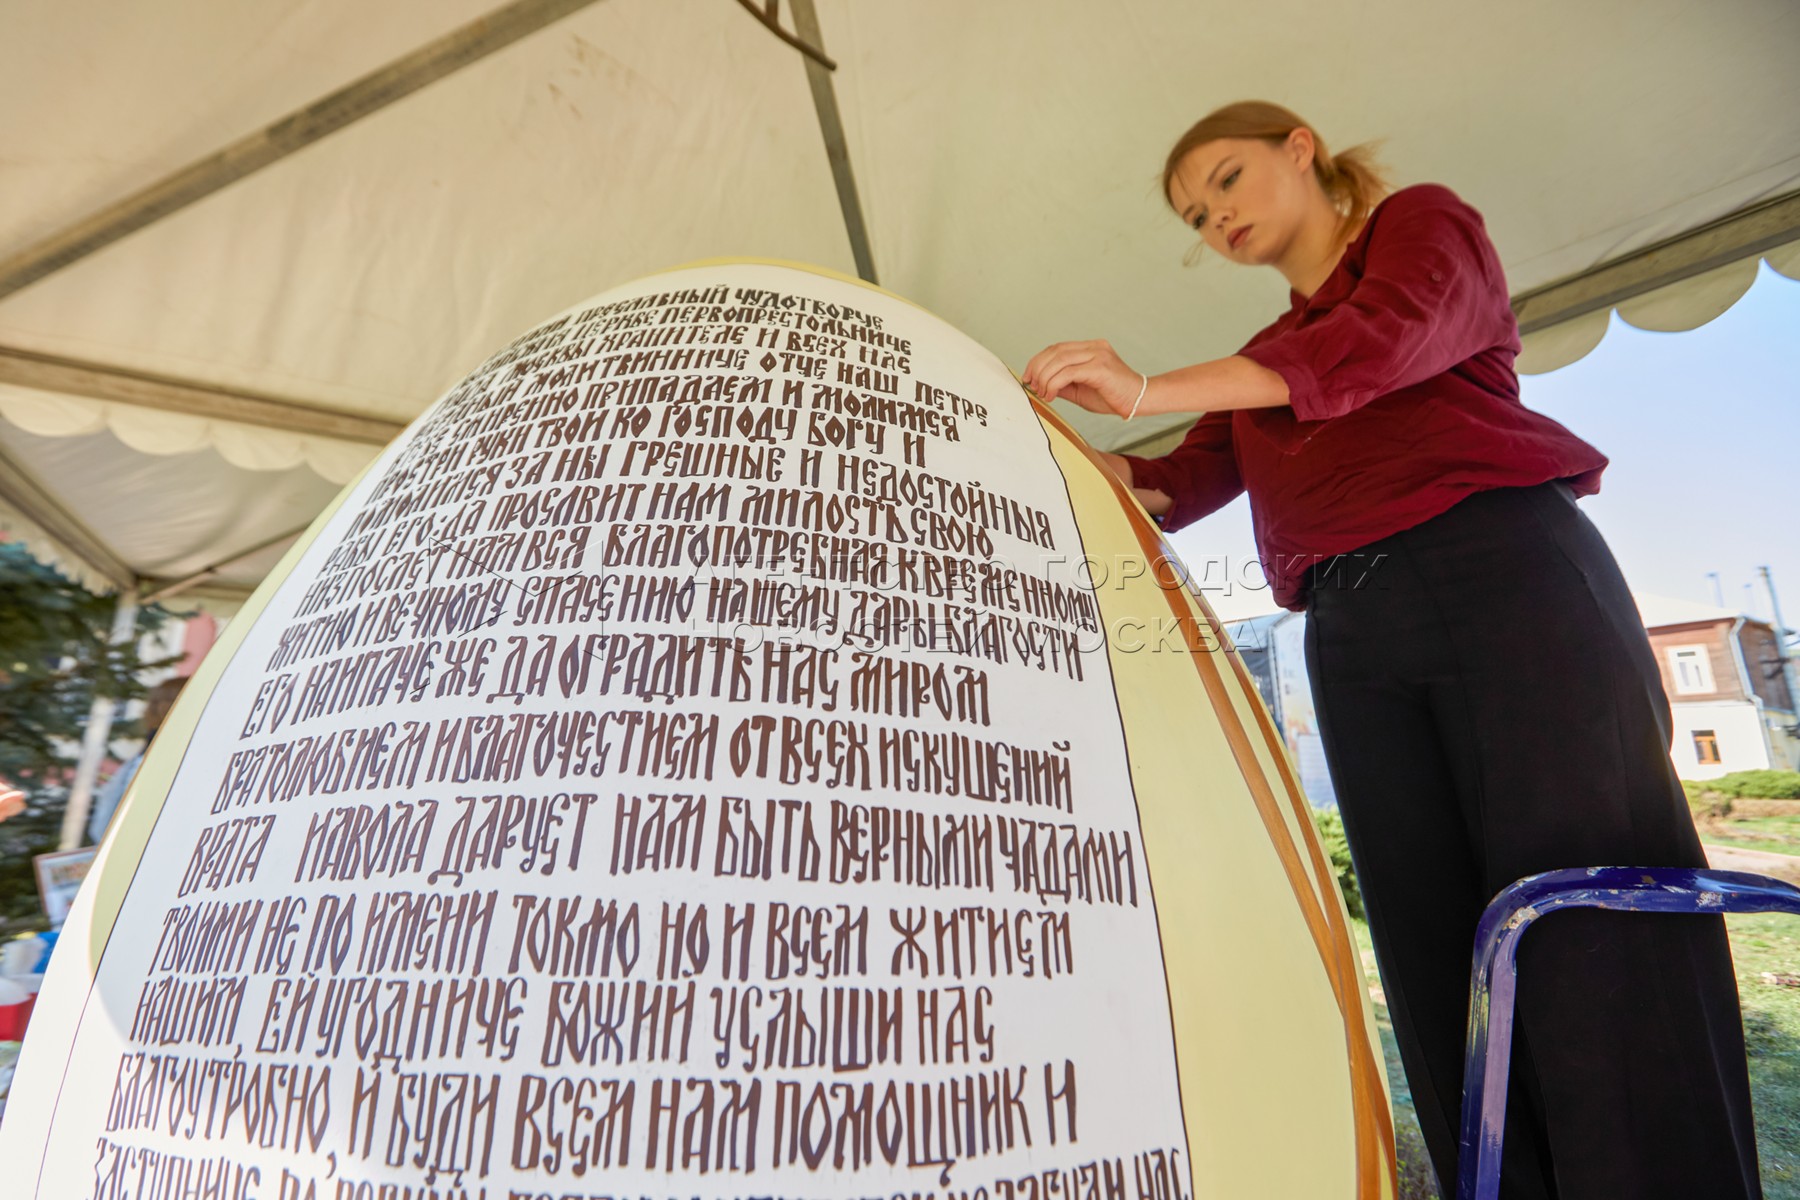 ПРЕСЛАВНЫЙ ЧУДОТВОРЧЕ
ЦЕРКВЕ ПЕРВОПРЕСТОЛЬНИЧЕ
МОСКВЫ ХРАНИТЕЛЕ И ВСЕХ НАС
МОЛИТВИННИЧЕ ОТЧЕ НАШ ПЕТРЕ
ПРИПАДАЕМ И МОЛИМСЯ
ПРОСТРИ РУКИ ТВОИ КО ГОСПОДУ БОГУ И
ПОМОЛИМСЯ ЗА НЫ ГРЕШНЫЕ И НЕДОСТОЙНЫЯ
РАБЫ ЕГО: ДА ПРОСЛВИТ НАМ МИЛОСТЬ СВОЮ
НИЗПОСЛЕТ НАМ ВСЯ БЛАГОПОТРЕБНАЯ К ВРЕМЕННОМУ
ЖИТИЮ И ВЕЧНОМУ СПАСЕНИЮ НАШЕМУ, ДАРЫ БЛАГОСТИ
ЕГО НАИПАЧЕ ЖЕ ДА ОГРАДИТЬ НАС МИРОМ
БРАТОЛЮБИЕМ И БЛАГОЧЕСТИЕМ ОТ ВСЕХ ИСКУШЕНИЙ
ВРАТА ИАВОЛА ДАРУЕТ НАМ БЫТЬ ВЕРНЫМИ ЧАДАМИ
ТВОИМИ НЕ ПО ИМЕНИ ТОКМО НО И ВСЕМ ЖИТИЕМ
НАШИМ, ЕЙ УГОДНИЧЕ БОЖИЙ УСЛЫШИ НАС
БЛАГОУТРОБНО, И БУДИ ВСЕМ НАМ ПОМОЩНИК И
ЗАСТУПНИЧЕ НАС
АГЕНТСТВО ГОРОДСКИХ
НОВОСТЕЙ МОСКВА